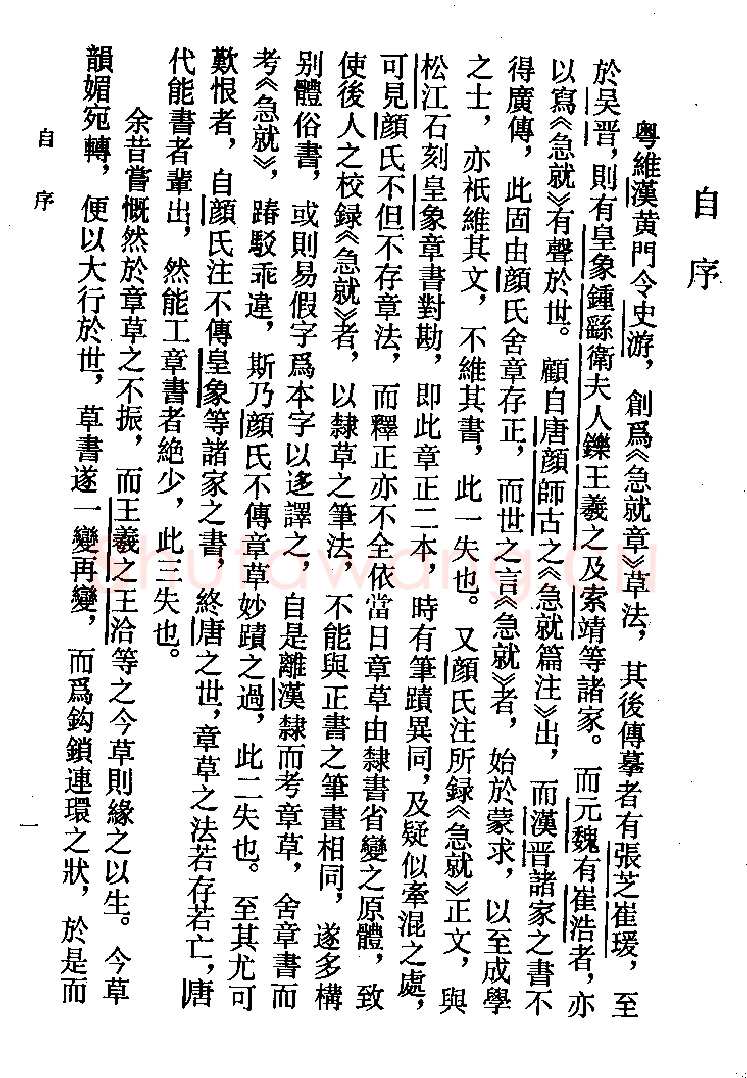 自序
粤維漢黄門令史游，創爲《急就章》草法，其後傳摹者有張芝崔瑗，至
於吴晋，則有皇象鍾繇衛夫人鑠王羲之及索靖等諸家。而元魏有崔浩者，亦
以寫《急就》有聲於世。顧自唐顔師古之《急就篇注》出，而漢晋諸家之書不
得廣傳，此固由顔氏舍章存正，而世之言《急就》者，始於蒙求，以至成學
之士，亦衹維其文，不維其書，此一失也。又顔氏注所録《急就》正文，與
松江石刻皇象章書對勘，即此章正二本，時有筆蹟異同，及疑似牽混之處，
可見顔氏不但不存章法，而釋正亦不全依當日章草由隸書省變之原體，致
使後人之校録《急就》者，以隸草之筆法，不能與正書之筆畫相同，遂多構
别體俗書，或則易假字爲本字以迻譯之，自是離漢隸而考章草，舍章書而
考《急就》，踳駁乖違，斯乃顔氏不傳章草妙蹟之過，此二失也。至其尤可
歎恨者，自顔氏注不傳皇象等諸家之書，終唐之世，章草之法若存若亡，唐
代能書者輩出，然能工章書者絶少，此三失也。
余昔嘗慨然於章草之不振，而王羲之王洽等之今草則緣之以生。今草
韻媚宛轉，便以大行於世，草書遂一變再變，而爲鈎鎖連環之狀，於是而
自序
一
shufawang.cn